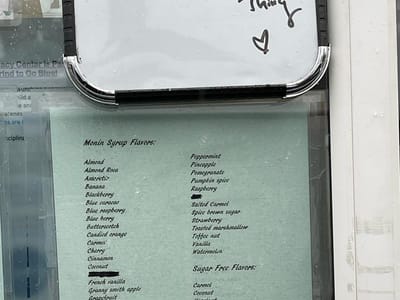 Thing
acy Center is
rind to Go Blue!
Monin Syrup Flavors:
Almond
Almond Roca
Amoretti
Banana
Blackberry
Blue curacao
Blue raspberry
Blue berry
Butterscotch
Candied orange
Carmel
Cherry
Cinnamon
Coconut
French vanilla
Granny smith apple
Grapefruit
Peppermint
Pineapple
Pomegranate
Pumpkin spice
Raspberry
Salted Carmel
Spice brown sugar
Strawberry
Toasted marshmallow
Toffee nut
Vanilla
Watermelon
Sugar Free Flavors:
Carmel
Coconut